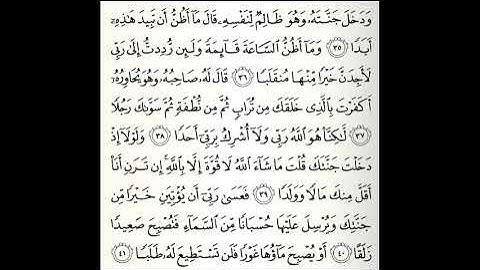 وَدَخَلَ جَنَّتَهُۥ وَهُوَ ظَالِمٌ لِّنَفْسِهِۦ قَالَ مَآ أَظُنُّ أَن تَبِيدَ هَٰذِهِۦٓ
أَبَدًا ٣٥ وَمَآ أَظُنُّ ٱلسَّاعَةَ قَآئِمَةً وَلَئِن رُّدِدتُّ إِلَىٰ رَبِّى
لَأَجِدَنَّ خَيْرًا مِّنْهَا مُنقَلَبًا ٣٦ قَالَ لَهُۥ صَاحِبُهُۥ وَهُوَ يُحَاوِرُهُۥٓ
أَكَفَرْتَ بِٱلَّذِى خَلَقَكَ مِن تُرَابٍ ثُمَّ مِن نُّطْفَةٍ ثُمَّ سَوَّىٰكَ رَجُلًا
٣٧ لَّٰكِنَّا۠ هُوَ ٱللَّهُ رَبِّى وَلَآ أُشْرِكُ بِرَبِّىٓ أَحَدًا ٣٨ وَلَوْلَآ إِذْ
دَخَلْتَ جَنَّتَكَ قُلْتَ مَا شَآءَ ٱللَّهُ لَا قُوَّةَ إِلَّا بِٱللَّهِ إِن تَرَنِ أَنَا۠
أَقَلَّ مِنكَ مَالًا وَوَلَدًا ٣٩ فَعَسَىٰ رَبِّىٓ أَن يُؤْتِيَنِ خَيْرًا مِّن
جَنَّتِكَ وَيُرْسِلَ عَلَيْهَا حُسْبَانًا مِّنَ ٱلسَّمَآءِ فَتُصْبِحَ صَعِيدًا
زَلَقًا ٤٠ أَوْ يُصْبِحَ مَآؤُهَا غَوْرًا فَلَن تَسْتَطِيعَ لَهُۥ طَلَبًا ٤١